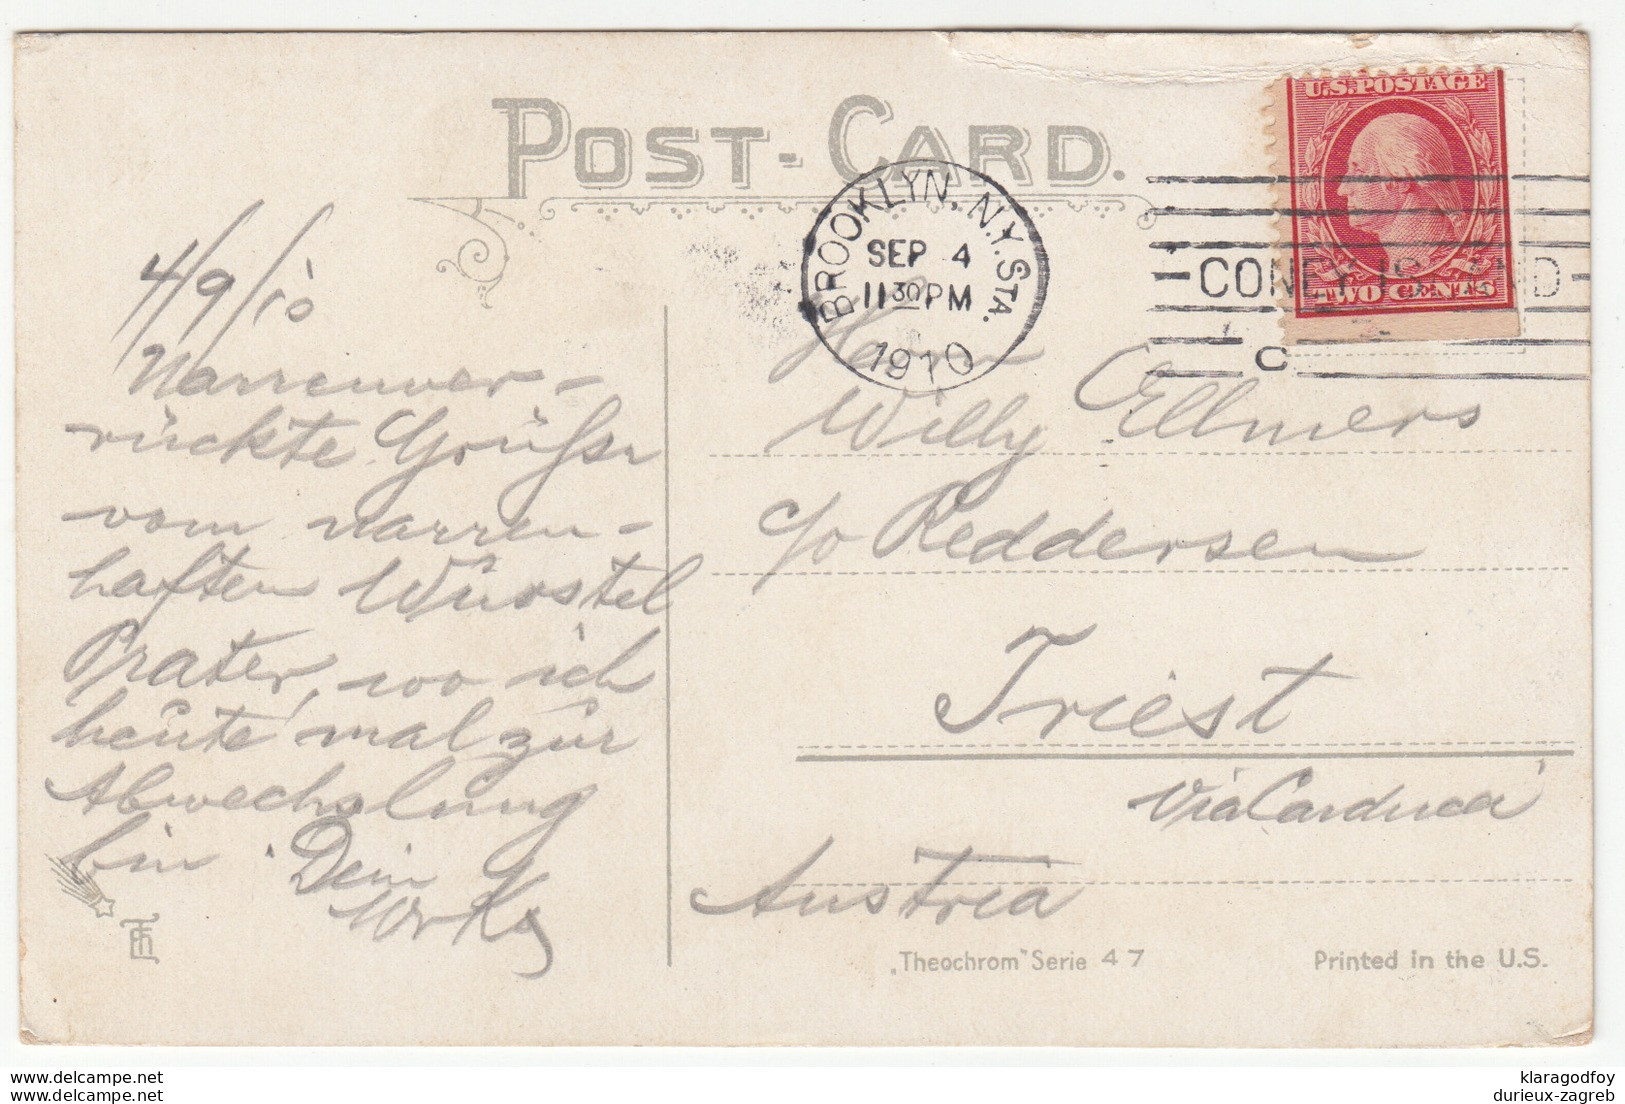 POST-CARD.
U.S. POSTAGE
TWO CENTS
BROOKLYN, N.Y. STA.
SEP 4
11 30 PM
1910
CONEY ISLAND
C
4/9/10
Narrenver-
rückte Grüße
vom narren-
haften Würstel
Prater, wo ich
heute mal zur
Abwechslung
bin. Dein
Herrn
Willy Ellmers
c/o Reddersen
Triest
Via Carducci
Austria
„Theochrom" Serie 47
Printed in the U.S.
www.delcampe.net
klaragodfoy
durieux-zagreb